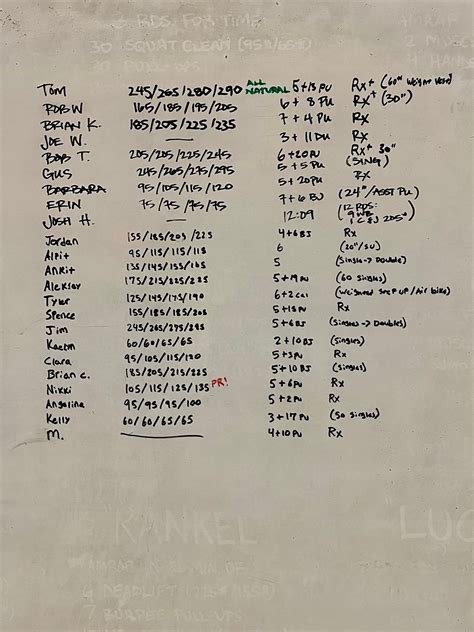 3 RDS. FOR TIME
30 SQUAT CLEAN (95#/65#)
30 PULL-UPS
AMRAP
Tom 245/265/280/290 ALL NATURAL 5+13 PU Rx+ (60# Weight Vest)
ROB W 165/185/195/205 6+8 PU Rx+ (30")
BRIAN K. 185/205/225/235 7+4 PU Rx
JOE W. — 3+11 DU Rx
BOB T. 205/205/225/245 6+20 PU Rx+ 30"
GUS 245/265/275/295 5+5 PU (SING)
BARBARA 95/105/115/120 5+20 PU Rx
ERIN 75/75/75/75 7+6 BJ (24"/ASST PU)
JOSH H. — 12:09 (12 RDS:
Jordan 155/185/205/225 4+6 BJ Rx
Alpit 95/115/115/115 6 (20"/SU)
Ankit 135/145/155/165 5 (Single -> Double)
Aleksey 175/215/225/225 5+19 PU (60 singles)
Tyler 125/145/175/190 6+2 cal (weighted step up / Air bike)
Spence 155/185/185/205 5+15 PU Rx
Jim 245/265/275/295 5+6 BJ (singles -> Doubles)
60/60/65/65 2+10 BJ (singles)
Clara 95/105/115/120 5+3 PU Rx
Brian C. 185/205/215/225 5+10 BJ (singles)
Nikki 105/115/125/135 PR! 5+6 PU Rx
Angelina 95/95/95/100 5+2 PU Rx
Kelly 60/60/65/65 3+17 PU (50 singles)
M. — 4+10 PU Rx
"RANKEL
LUC
6 DEADLIFT (225#/155#)
7 BURPEE PULL-UPS